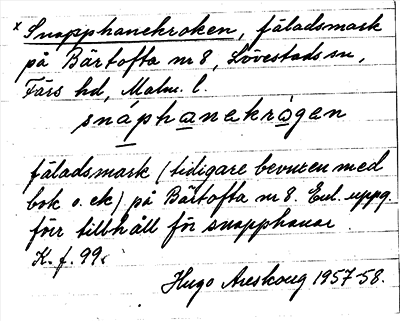 x Snapphanekroken, fäladsmark
på Bärtofta nr 8, Lövestads sn,
Färs hd, Malm. l.
snáphanekrògen
fäladsmark (tidigare bevuxen med
bok o. ek) på Bärtofta nr 8. Enl. uppg.
förr tillhåll för snapphanar.
K. f. 99.
Hugo Areskoug 1957-58.